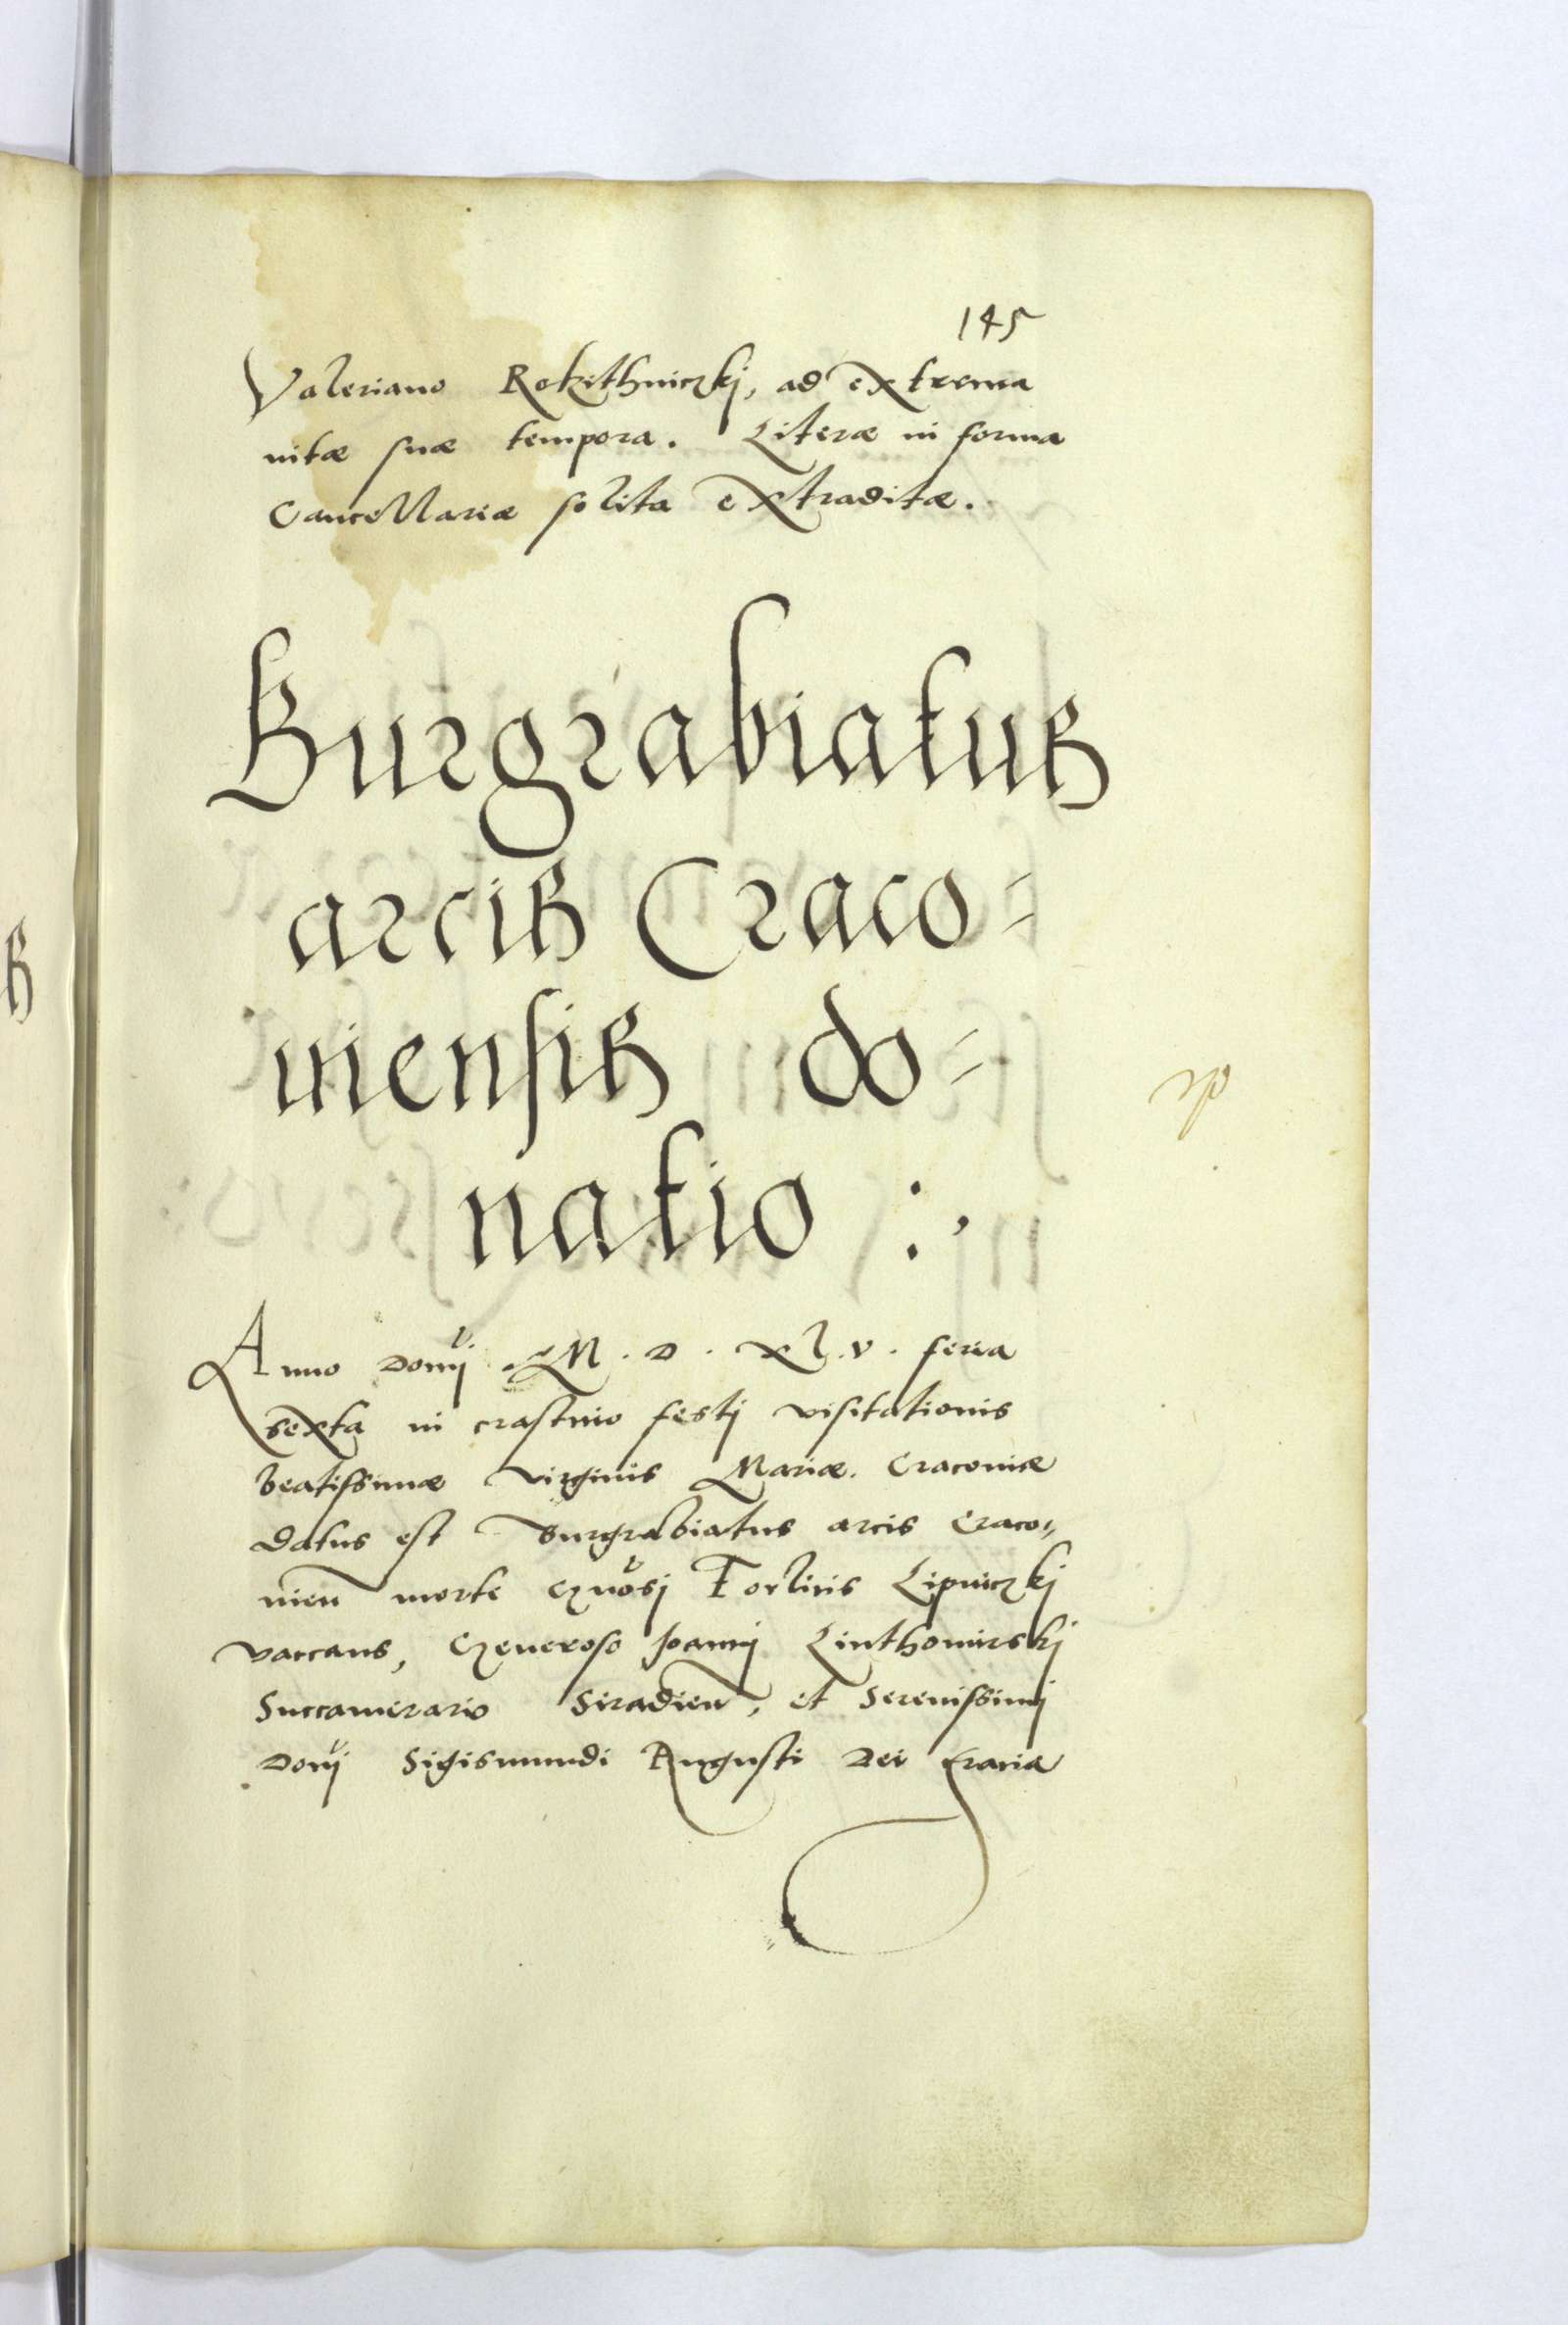 145
Valeriano Rokithniczkj, ad extrema
uitæ suæ tempora. Literæ in forma
Cancellariæ solita extraditæ.
Burgrabiatus
arcis Craco=
uiensis do=
natio :,
Anno Domj M. D. xl. v. feria
sexta in crastino festj visitationis
beatissimæ virginis Mariæ. Cracouiæ
datus est Burgrabiatus arcis Craco=
uien morte Gnosj Forlitis Lipniczkj
vaccans, Generoso Joannj Linthomirskj
Succamerario Siradien, et Serenissimj
Donj Sigismundi Augusti Dei Gracia